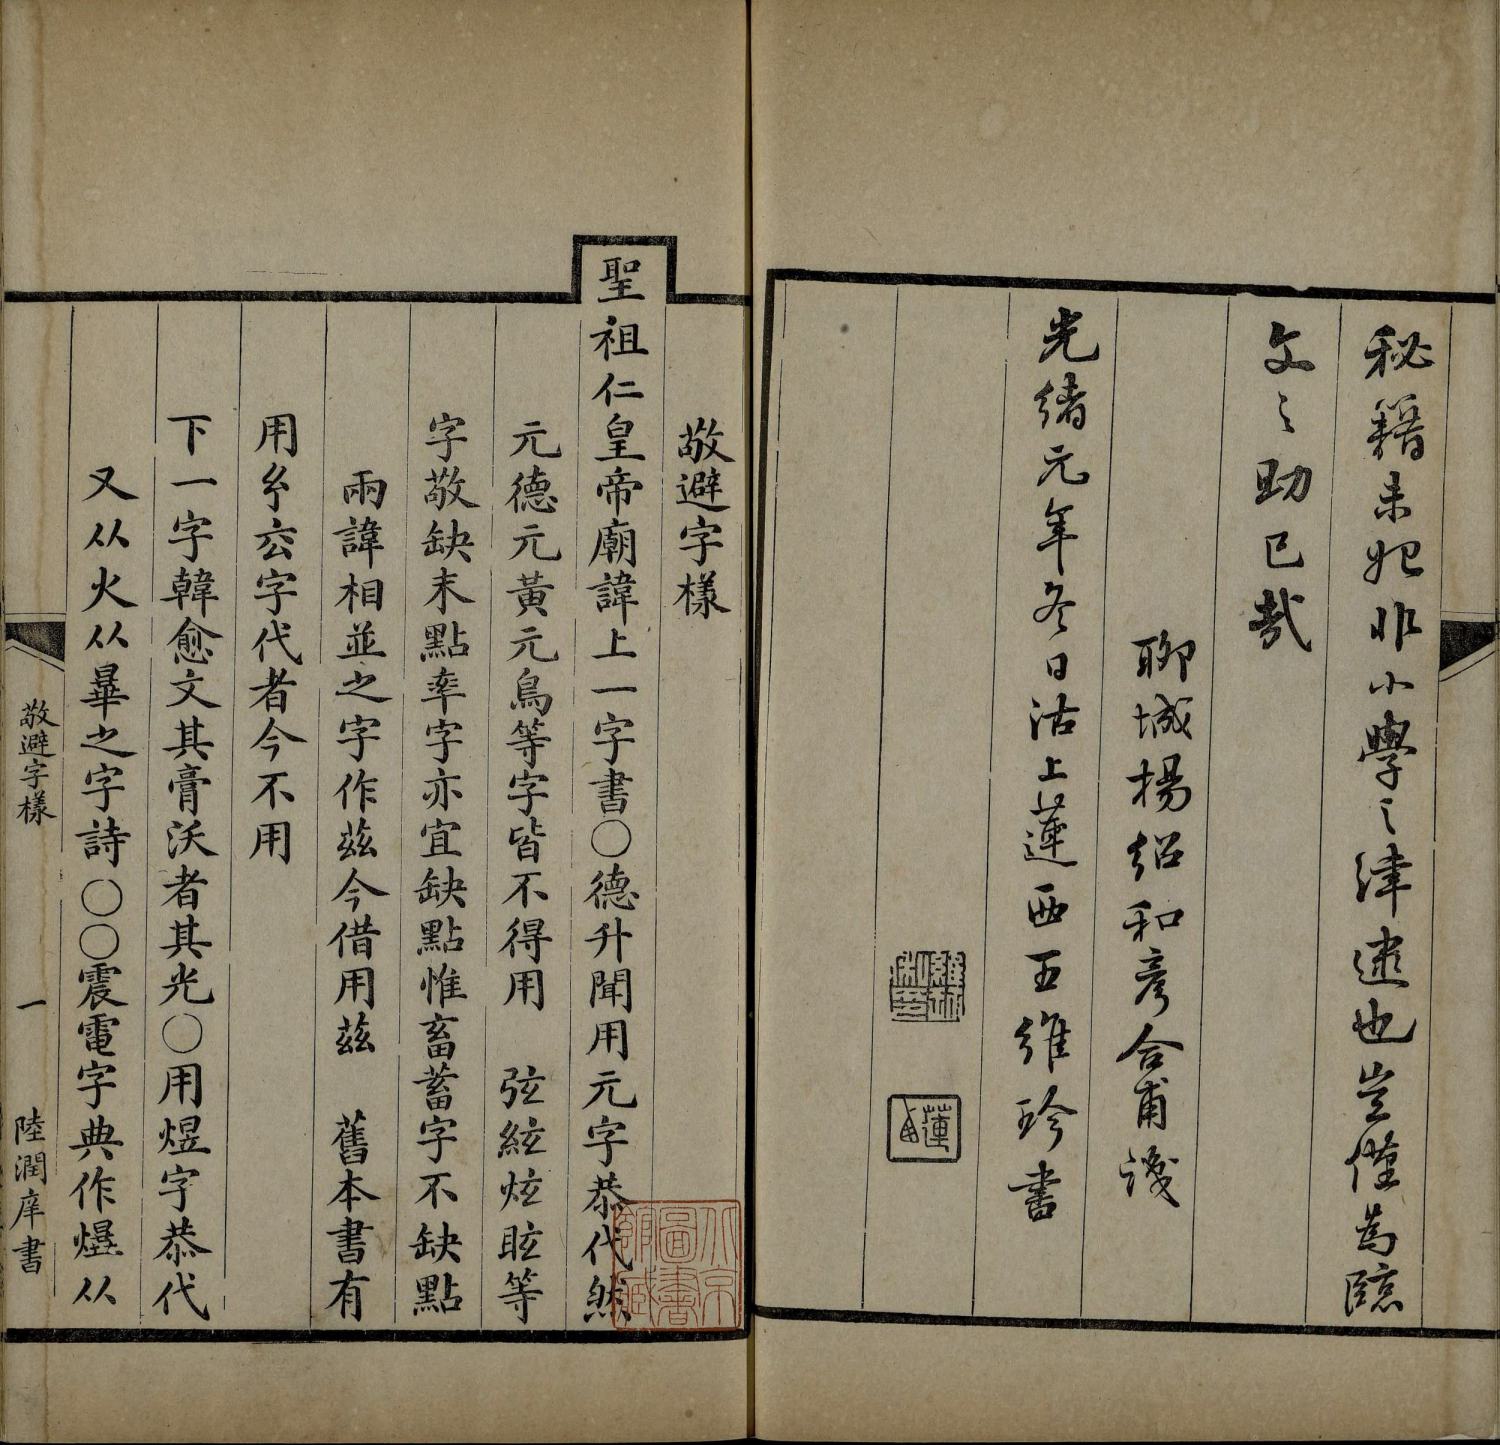 秘籍未始非小學之津逮也豈僅為臨
文之助已哉
聊城楊紹和彥合甫識
光緒元年冬日沽上蓮西王維珍書
敬避字樣
聖祖仁皇帝廟諱上一字書〇德升聞用元字恭代然
元德元黃元鳥等字皆不得用　弦絃炫眩等
字敬缺末點率字亦宜缺點惟畜蓄字不缺點
兩諱相並之字作玆今借用茲　舊本書有
用玄字代者今不用
下一字韓愈文其膏沃者其光〇用煜字恭代
又从火从畢之字詩〇〇震電字典作爗从
敬避字樣
一
陸潤庠書